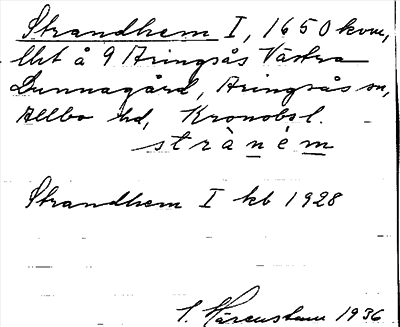 Strandhem I, 1650 kvm,
lht å 9 Aringsås Västra
Dunnagård, Aringsås sn,
Allbo hd, Kronobs l.
stràném
Strandhem I kb 1928
1936